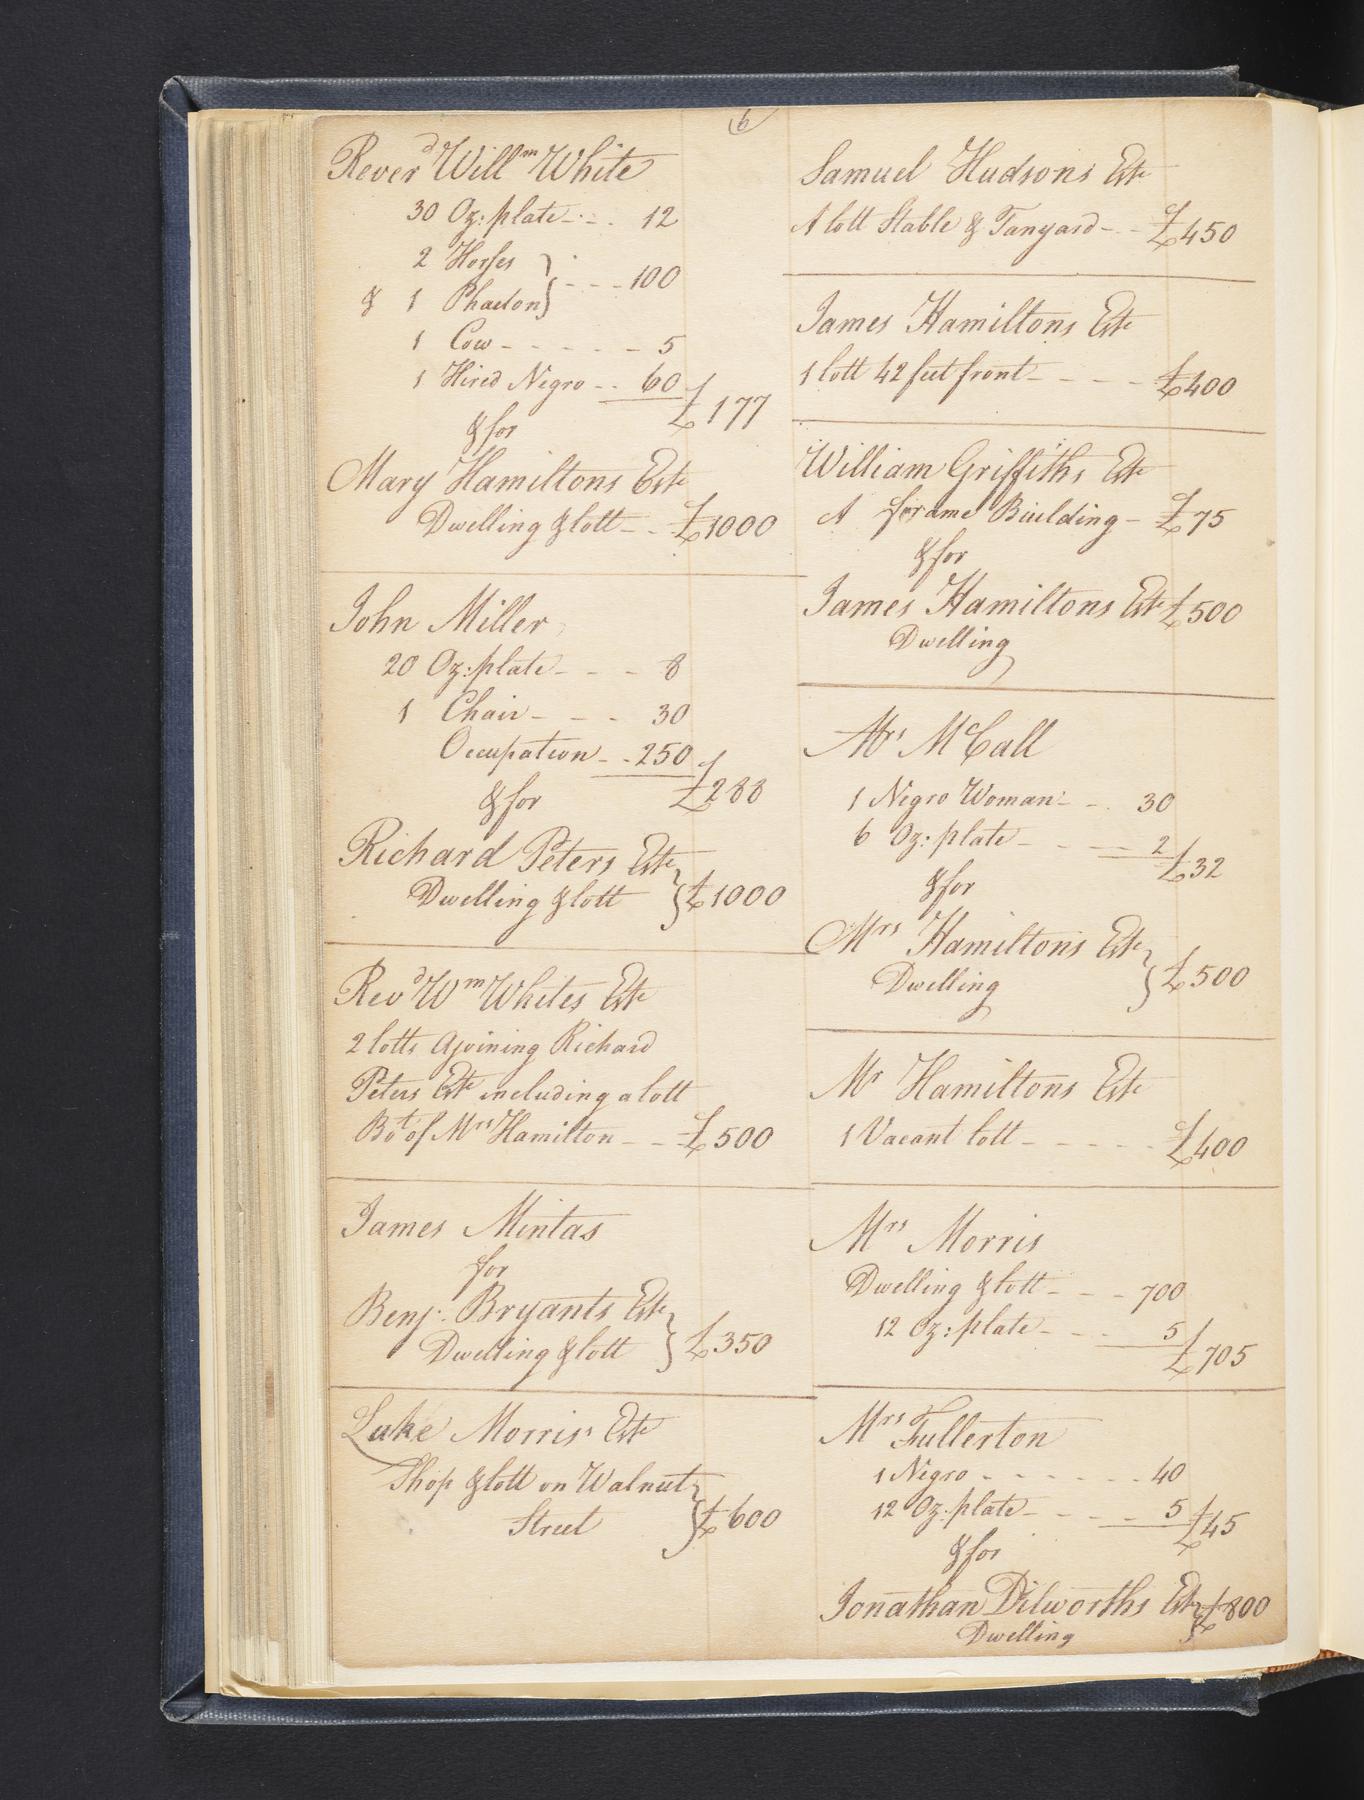 6
Reverd Willm White
30 Oz: plate - - - 12
2 Horses
& 1 Phaeton } - - - 100
1 Cow - - - - - - 5
1 Hired Negro - - 60
£177
& for
Mary Hamiltons Este
Dwelling & lott - - £1000
John Miller
20 Oz: plate - - - 8
1 Chair - - - 30
Occupation - - 250
& for £288
Richard Peters Este
Dwelling & lott } £1000
Revd Wm Whites Este
2 lotts Ajoining Richard
Peters Este including a lott
Bot of Mrs Hamilton - - £500
James Mintas
for
Benj: Bryants Este
Dwelling & lott } £350
Luke Morris' Este
Shop & lott on Walnut
Street } £600
Samuel Hudsons Este
A lott Stable & Tanyard - - £450
James Hamiltons Este
1 lott 42 feet front - - - - £400
William Griffiths Este
A frame Building - £75
& for
James Hamiltons Este £500
Dwelling
Mrs McCall
1 Negro Woman - - 30
6 Oz: plate - - - - 2
£32
& for
Mrs Hamiltons Este
Dwelling } £500
Mr Hamiltons Este
1 Vacant lott - - - - - £400
Mrs Morris
Dwelling & lott - - - 700
12 Oz: plate - - - 5
£705
Mrs Fullerton
1 Negro - - - - - - - 40
12 Oz: plate - - - - 5
£45
& for
Jonathan Dilworths Este } £800
Dwelling